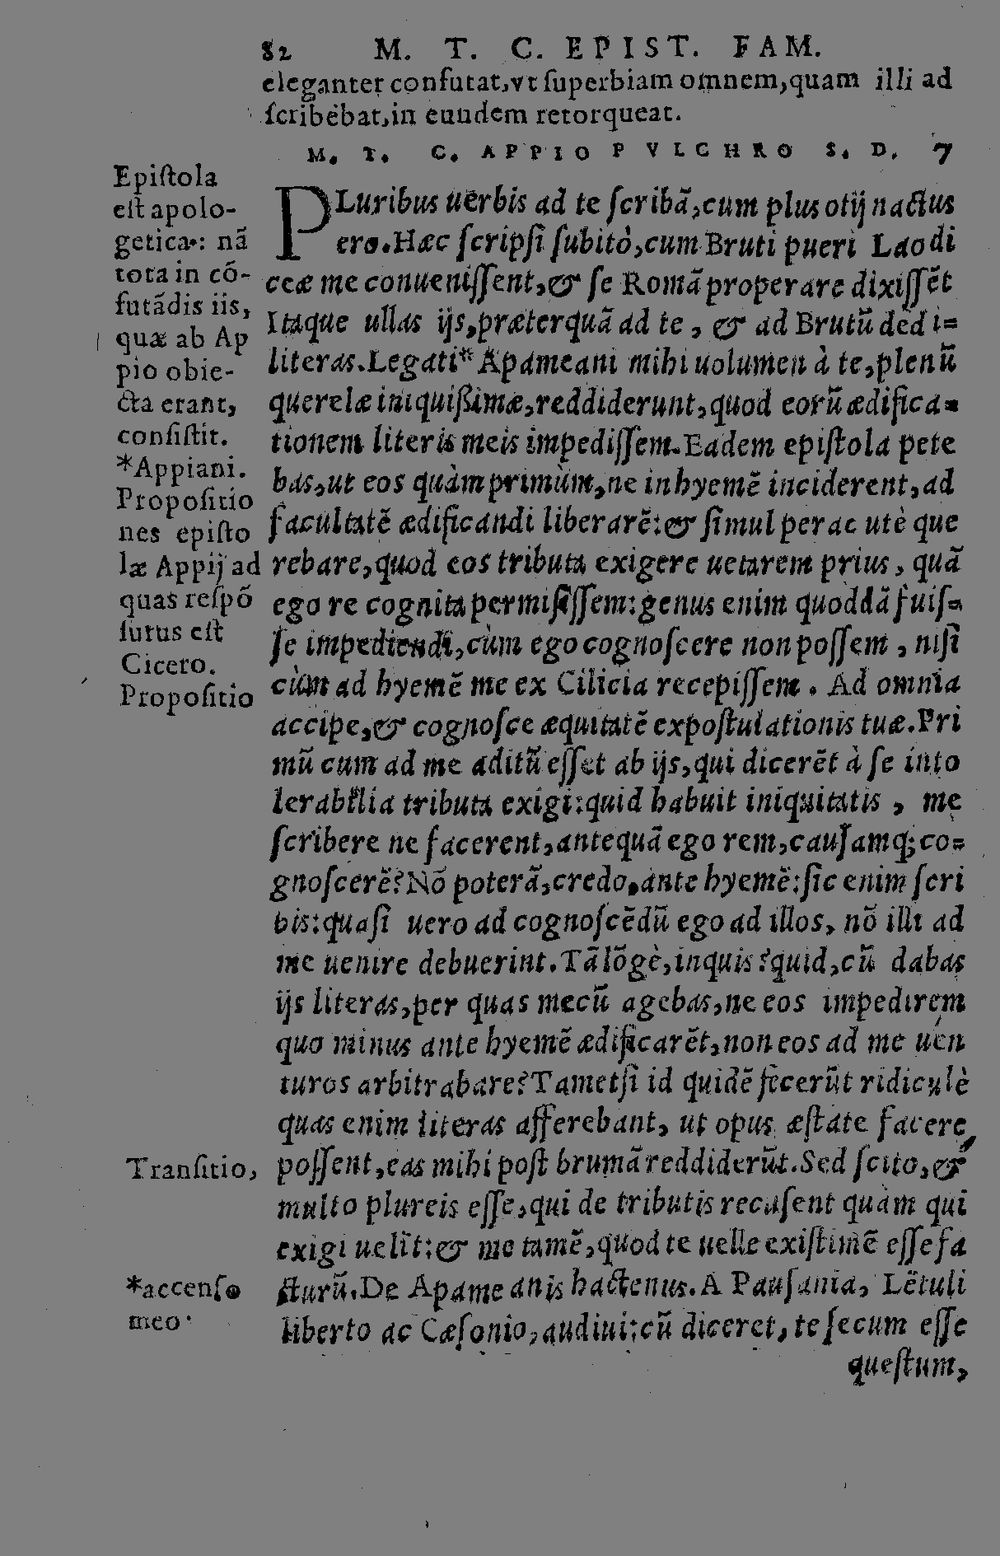 82 M. T. C. EPIST. FAM.
eleganter confutat, vt superbiam omnem, quam illi ad
scribebat, in eundem retorqueat.
M. T. C. APPIO PVLCHRO S. D. 7
Epistola
est apolo-
getica: nã
tota in cõ-
futãdis iis,
quæ ab Ap
pio obie-
cta erant,
consistit.
*Appiani.
Propositio
nes episto
læ Appij ad
quas respõ
surus est
Cicero.
Propositio
PLuribus uerbis ad te scribã, cum plus otij nactus
ero. Hæc scripsi subitò, cum Bruti pueri Laodi
ceæ me conuenissent, & se Romã properare dixissẽt
Itaque ullas ijs, præterquã ad te, & ad Brutũ dedi=
literas. Legati* Apameani mihi uolumen à te, plenũ
querelæ iniquißimæ, reddiderunt, quod eorũ ædifica=
tionem literis meis impedissem. Eadem epistola pete
bas, ut eos quàm primùm, ne in hyemẽ inciderent, ad
facultatẽ ædificandi liberarẽ: & simul per ac utè que
rebare, quod eos tributa exigere uetarem prius, quã
ego re cognita permisissem: genus enim quoddã fuis=
se impediendi, cùm ego cognoscere non possem, nisi
cùm ad hyemẽ me ex Cilicia recepissem. Ad omnia
accipe, & cognosce æquitatẽ expostulationis tuæ. Pri
mũ cum ad me aditũ esset ab ijs, qui dicerẽt à se into
lerabilia tributa exigi: quid habuit iniquitatis, me
scribere ne facerent, antequã ego rem, causamq; co=
gnoscerẽ? Nõ poterã, credo, ante hyemẽ: sic enim scri
bis: quasi uero ad cognoscẽdũ ego ad illos, nõ illi ad
me uenire debuerint. Tã lõgè, inquis? quid, cũ dabas
ijs literas, per quas mecũ agebas, ne eos impedirem
quo minus ante hyemẽ ædificarẽt, non eos ad me uen
turos arbitrabare? Tametsi id quidẽ fecerũt ridiculè
quas enim literas afferebant, ut opus æstate facere
possent, eas mihi post brumã reddiderũt. Sed scito, &
multo plureis esse, qui de tributis recusent quàm qui
exigi uelĩt: & me tamẽ, quod te uelle existimẽ esse fa
cturũ. De Apameanis hactenus. A Pausania, Lẽtuli
liberto ac Cæsonio, audiui: cũ diceret, te secum esse
Transitio,
*accenso
meo
questum,